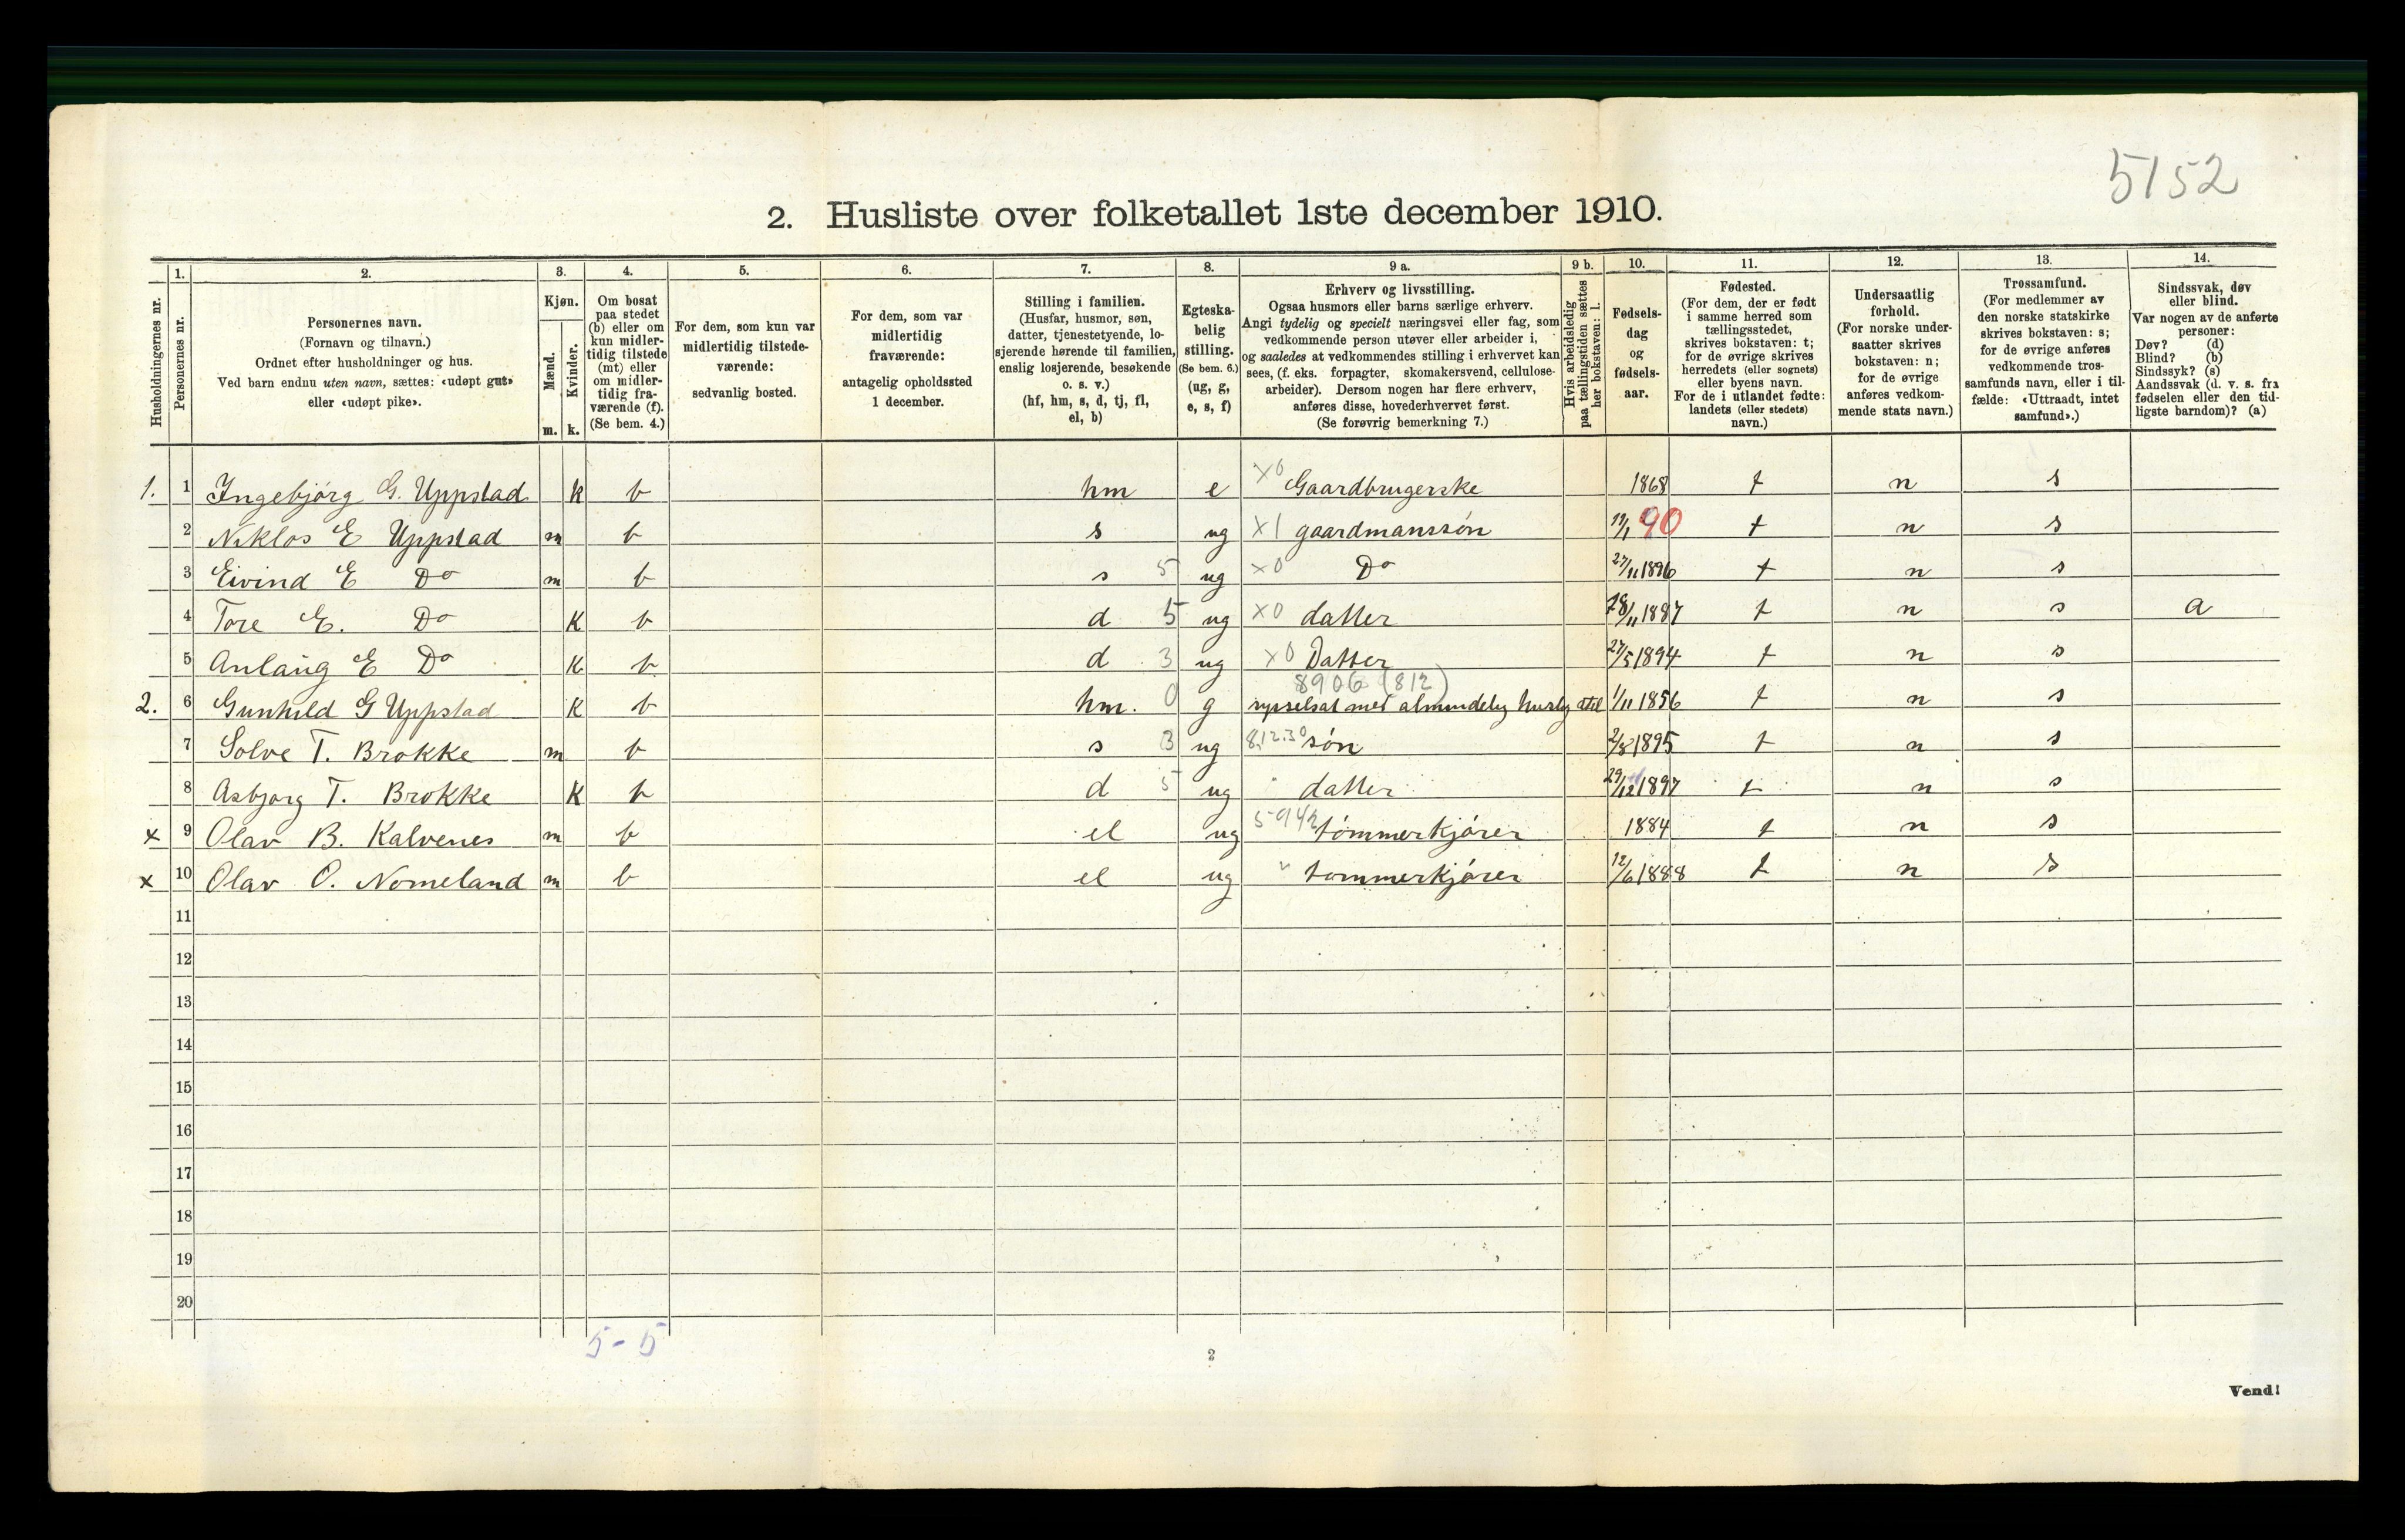 5152
2. Husliste over folketallet 1ste december 1910.
Husholdningernes nr.
1.
Personernes nr.
2.
Personernes navn.
(Fornavn og tilnavn.)
Ordnet efter husholdninger og hus.
Ved barn endnu uten navn, sættes: «udøpt gut»
eller «udøpt pike».
3.
Kjøn.
Mænd.
Kvinder.
m. k.
4.
Om bosat
paa stedet
(b) eller om
kun midler-
tidig tilstede
(mt) eller
om midler-
tidig fra-
værende (f).
(Se bem. 4.)
5.
For dem, som kun var
midlertidig tilstede-
værende:
sedvanlig bosted.
6.
For dem, som var
midlertidig
fraværende:
antagelig opholdssted
1 december.
7.
Stilling i familien.
(Husfar, husmor, søn,
datter, tjenestetyende, lo-
sjerende hørende til familien,
enslig losjerende, besøkende
o. s. v.)
(hf, hm, s, d, tj, fl,
el, b)
8.
Egteska-
belig
stilling.
(Se bem. 6.)
(ug, g,
e, s, f)
9 a.
Erhverv og livsstilling.
Ogsaa husmors eller barns særlige erhverv.
Angi tydelig og specielt næringsvei eller fag, som
vedkommende person utøver eller arbeider i,
og saaledes at vedkommendes stilling i erhvervet kan
sees, (f. eks. forpagter, skomakersvend, cellulose-
arbeider). Dersom nogen har flere erhverv,
anføres disse, hovederhvervet først.
(Se forøvrig bemerkning 7.)
9 b.
Hvis arbeidsledig
paa tællingstiden sættes
her bokstaven: l.
10.
Fødsels-
dag
og
fødsels-
aar.
11.
Fødested.
(For dem, der er født
i samme herred som
tællingsstedet,
skrives bokstaven: t;
for de øvrige skrives
herredets (eller sognets)
eller byens navn.
For de i utlandet fødte:
landets (eller stedets)
navn.)
12.
Undersaatlig
forhold.
(For norske under-
saatter skrives
bokstaven: n;
for de øvrige
anføres vedkom-
mende stats navn.)
13.
Trossamfund.
(For medlemmer av
den norske statskirke
skrives bokstaven: s;
for de øvrige anføres
vedkommende tros-
samfunds navn, eller i til-
fælde: «Uttraadt, intet
samfund».)
14.
Sindssvak, døv
eller blind.
Var nogen av de anførte
personer:
Døv? (d)
Blind? (b)
Sindssyk? (s)
Aandssvak (d. v. s. fra
fødselen eller den tid-
ligste barndom)? (a)
1. 1 Ingebjórg G. Uppstad k b hm e x0 Gaardbrugerske 1868 t n s
2 Niklos E Uppstad m b s ug x1 gaardmanssón 19/1 90 t n s
3 Eivind E Do m b s 5 ug x0 Do 27/11 1896 t n s
4 Tore E. Do K b d 5 ug x0 datter 28/11 1887 t n s a
5 Anlaug E Do K b d 3 ug x0 Datter 27/5 1894 t n s
8906 (812)
2. 6 Gunhild G Uppstad K b hm. 0 g syselsat med almindelig huslig 1/11 1856 t n s
7 Solve T. Brokke m b s 3 ug 812.30 són 2/8 1895 t n s
8 Asbjorg T. Brokke K b d 5 ug " datter 29/12 1897 t n s
x 9 Olav B. Kalvenes m b el ug tómmerkjórer 1884 t n s
x 10 Olav O. Nomeland m b el ug " tommerkjórer 12/6 1888 t n s
11
12
13
14
15
16
17
18
19
20
5-5
2
Vend!